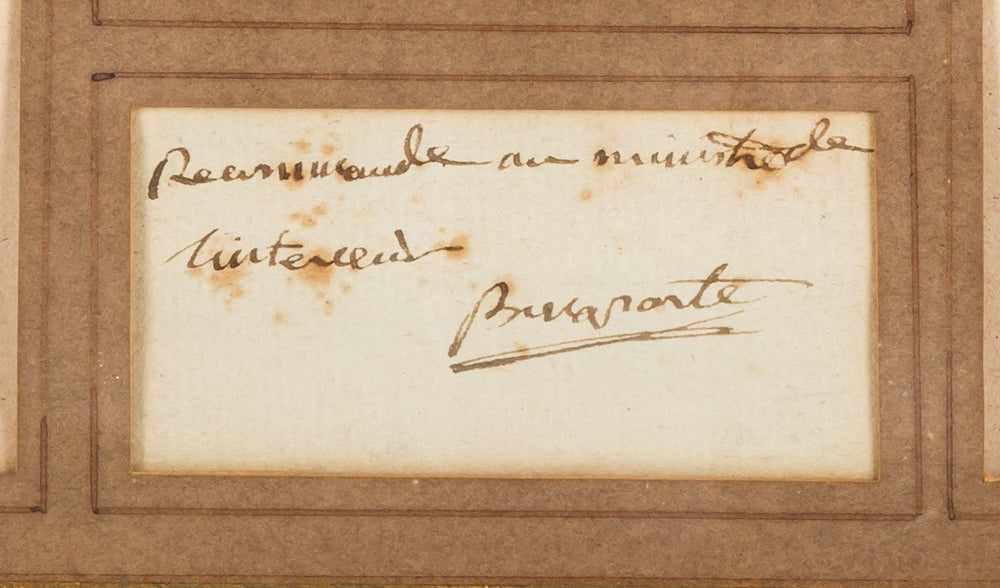 Recommandé au ministre de
l'interieur
Buonaparte